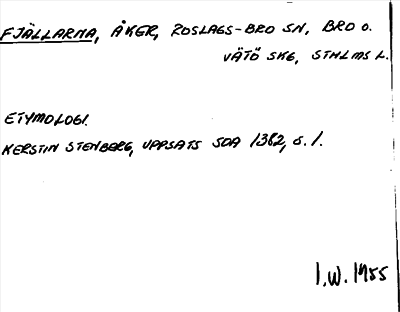 FJÄLLARNA, ÅKER, ROSLAGS-BRO SN, BRO O.
VÄTÖ SKG, STHLMS L.
ETYMOLOGI.
KERSTIN STENBERG, UPPSATS SOA 1382, S. 1.
I.W. 1955